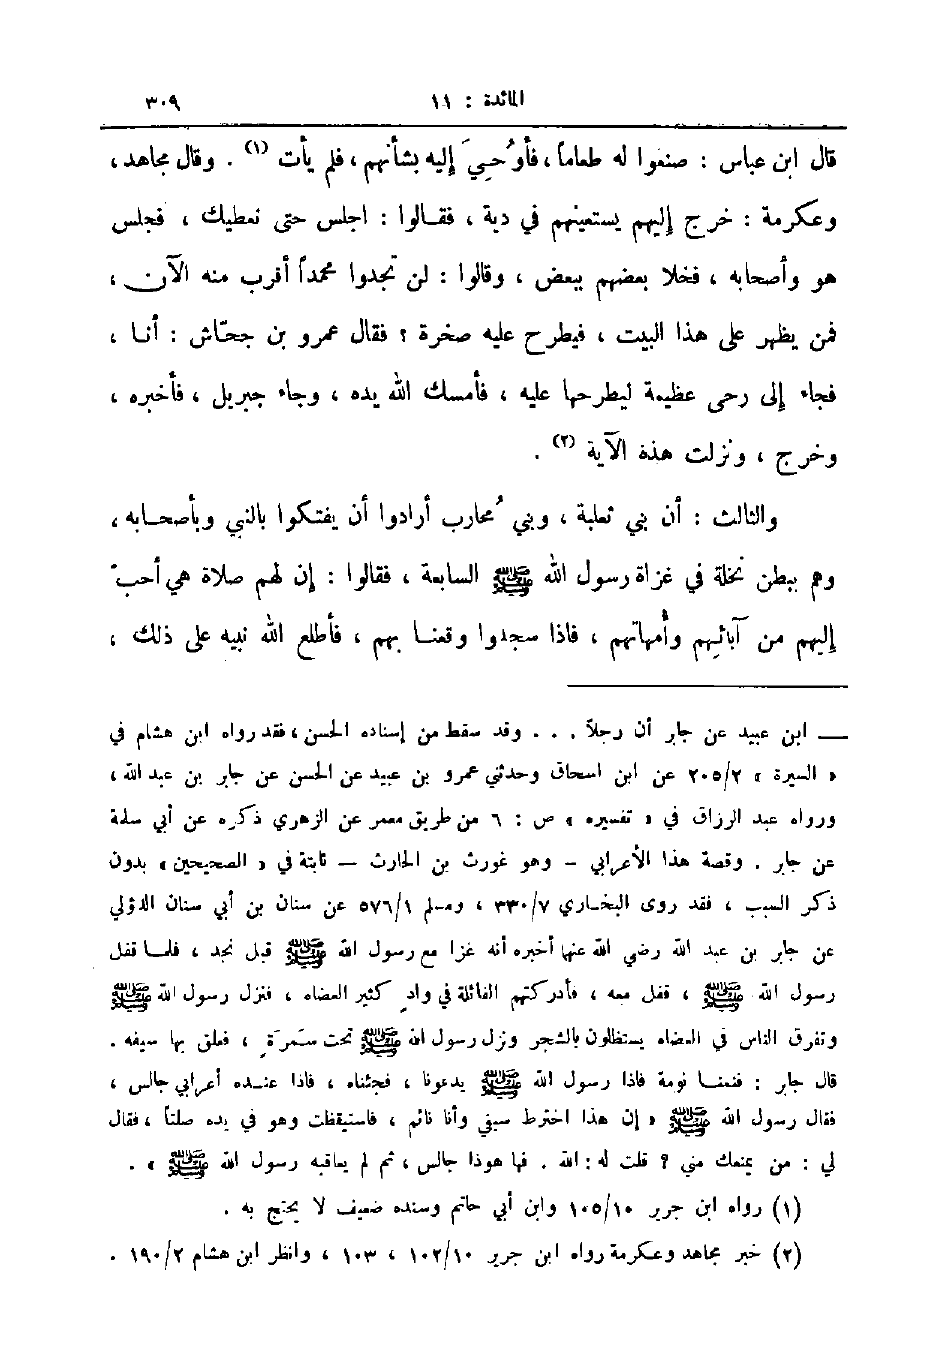 المائدة : ١١ ٣٠٩
قال ابن عباس : صنعوا له طعاماً ، فأُوحيَ إليه بشأنهم ، فلم يأت (١) . وقال مجاهد ،
وعكرمة : خرج إليهم يستعينهم في دية ، فقالوا : اجلس حتى نعطيك ، فجلس
هو وأصحابه ، فخلا بعضهم ببعض ، وقالوا : لن تجدوا محمداً أقرب منه الآن ،
فمن يظهر على هذا البيت ، فيطرح عليه صخرة ؟ فقال عمرو بن جحّاش : أنا ،
فجاء إلى رحى عظيمة ليطرحها عليه ، فأمسك الله يده ، وجاء جبريل ، فأخبره ،
وخرج ، ونزلت هذه الآية (٢) .
والثالث : أن بني ثعلبة ، وبني مُحارب أرادوا أن يفتكوا بالنبي وبأصحابه ،
وهم ببطن نخلة في غزاة رسول الله ﷺ السابعة ، فقالوا : إن لهم صلاة هي أحبّ
إليهم من آبائهم وأُمهاتهم ، فاذا سجدوا وقعنا بهم ، فأطلع الله نبيه على ذلك ،
— ابن عبيد عن جابر أن رجلاً . . . وقد سقط من إسناده الحسن ، فقد رواه ابن هشام في
« السيرة » ٢/٢٠٥ عن ابن اسحاق وحدثني عمرو بن عبيد عن الحسن عن جابر بن عبد الله ،
ورواه عبد الرزاق في « تفسيره » ص : ٦ من طريق معمر عن الزهري ذكره عن أبي سلمة
عن جابر . وقصة هذا الأعرابي – وهو غورث بن الحارث – ثابتة في « الصحيحين » بدون
ذكر السبب ، فقد روى البخاري ٧/٣٣٠ ، ومسلم ١/٥٧٦ عن سنان بن أبي سنان الدؤلي
عن جابر بن عبد الله رضي الله عنها أخبره أنه غزا مع رسول الله ﷺ قبل نجد ، فلما قفل
رسول الله ﷺ ، قفل معه ، فأدركتهم القائلة في وادٍ كثير العضاه ، فنزل رسول الله ﷺ
وتفرق الناس في العضاه يستظلون بالشجر ونزل رسول الله ﷺ تحت سَمرَةٍ ، فعلق بها سيفه .
قال جابر : فنمنا نومة فاذا رسول الله ﷺ يدعونا ، فجئناه ، فاذا عنده أعرابي جالس ،
فقال رسول الله ﷺ « إن هذا اخترط سيفي وأنا نائم ، فاستيقظت وهو في يده صلتاً ، فقال
لي : من يمنعك مني ؟ قلت له : الله . فها هوذا جالس ، ثم لم يعاقبه رسول الله ﷺ » .
(١) رواه ابن جرير ١٠/١٠٥ وابن أبي حاتم وسنده ضعيف لا يحتج به .
(٢) خبر مجاهد وعكرمة رواه ابن جرير ١٠/١٠٢ ، ١٠٣ ، وانظر ابن هشام ٢/١٩٠ .